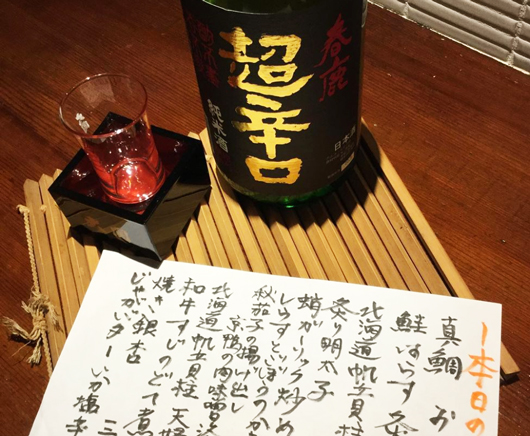 春鹿
超辛口
純米酒
日本酒
本日の
真鯛 お
鮭はらす
北海道帆立貝柱
炙り明太子
蛸がーりっく炒め
しらすと
秋茄子の揚げ出し
京鴨の肉味噌
北海道帆立貝柱 天
和牛すじのどて煮
焼き銀杏
じゃがバターいか塩辛